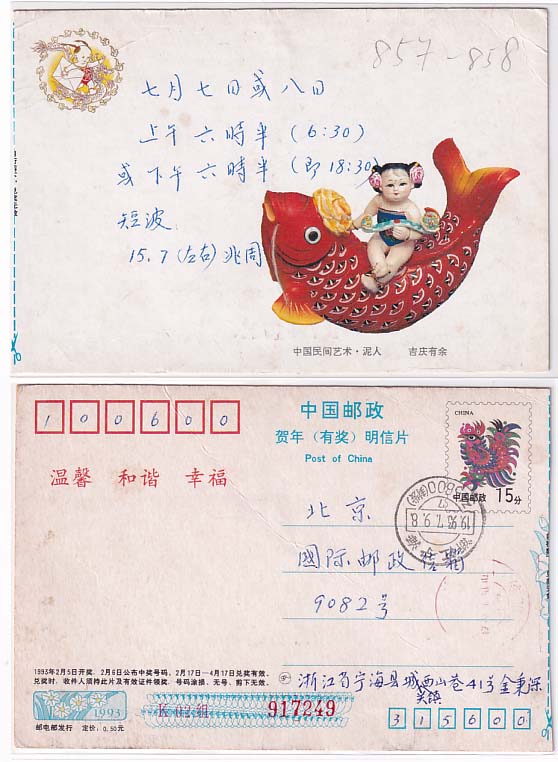 857-858
七月七日或八日
上午六時半(6:30)
或下午六時半(即18:30)
短波
15.7(左右)兆周
中国民间艺术·泥人 吉庆有余
100600
中国邮政
贺年(有奖)明信片
Post of China
CHINA
中国邮政 15分
温馨 和谐 幸福
北京
國际邮政信箱
9082号
1993年2月5日开奖,2月6日公布中奖号码,2月17日—4月17日兑奖有效。
兑奖时,收件人须持此片及有效证件领奖。号码涂损、无号、剪下无效。
浙江省宁海县城西山巷41号金秉深
1993
K 02组 917249
邮电部发行 定价:0.50元
315600